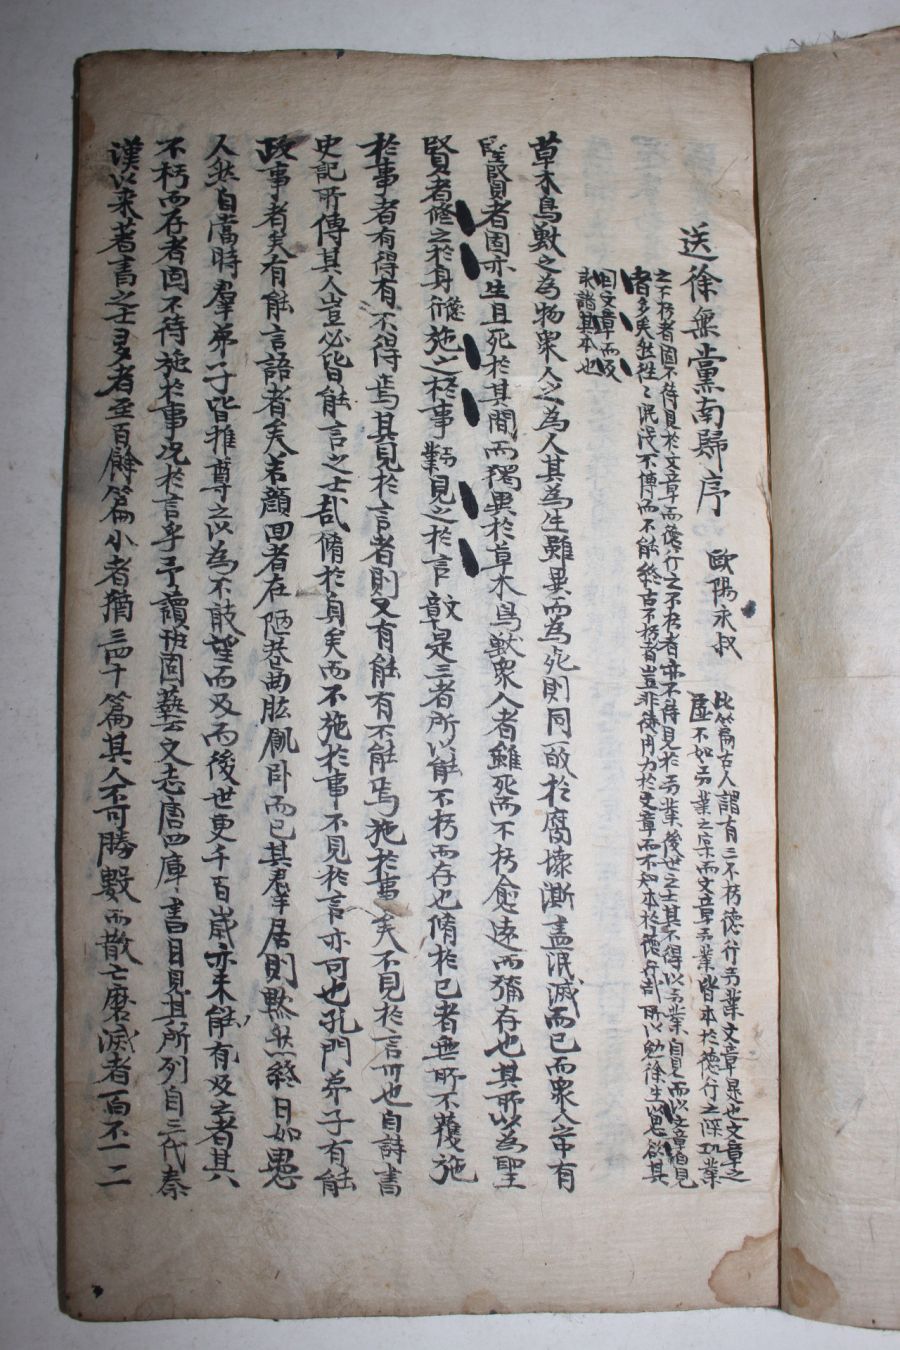 送徐無黨南歸序
歐陽永叔
此篇古人謂有三不朽德行功業文章是也文章之
虛不如功業之實而文章功業皆本於德行之深功業
之不朽者固不待見於文章而德行之不朽者亦不待見於功業後世之士其不得以功業自見而以文章自見
者多矣然往〻泯沒不傳而不能終古不朽者豈非徒用力於文章而不知本於德行哉所以勉徐生以思欲其
因文章而反
求諸其本也
草木鳥獸之為物衆人之為人其為生雖異而為死則同一故於腐壞澌盡泯滅而已而衆人之中有
聖賢者固亦生且死於其間而獨異於草木鳥獸衆人者雖死而不朽愈遠而彌存也其所以為聖
賢者修之於身德行施之於事功業見之於言文章是三者所以能不朽而存也脩於己者無所不獲施
於事者有得有不得焉其見於言者則又有能有不能焉施於事矣不見於言可也自詩書
史記所傳其人豈必皆能言之士哉脩於身矣而不施於事不見於言亦可也孔門弟子有能
政事者矣有能言語者矣若顏回者在陋巷曲肱飢臥而已其羣居則默然終日如愚
人然自當時羣弟子皆推尊之以為不敢望而及而後世更千百歲亦未能有及之者其
不朽而存者固不待施於事況於言乎予讀班固藝文志唐四庫書目見其所列自三代秦
漢以來著書之士多者至百餘篇小者猶三四十篇其人不可勝數而散亡磨滅者百不一二